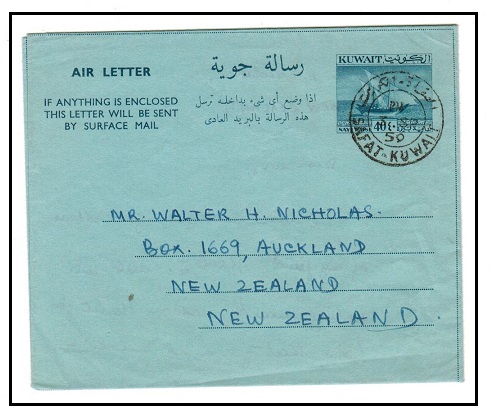 AIR LETTER
IF ANYTHING IS ENCLOSED
THIS LETTER WILL BE SENT
BY SURFACE MAIL
رسالة جوية
اذا وضع أى شىء بداخله ترسل
هذه الرسالة بالبريد العادى
KUWAIT الكويت
40
SAFAT-KUWAIT
PM
59
MR. WALTER H. NICHOLAS.
BOX. 1669, AUCKLAND
NEW ZEALAND
NEW ZEALAND.